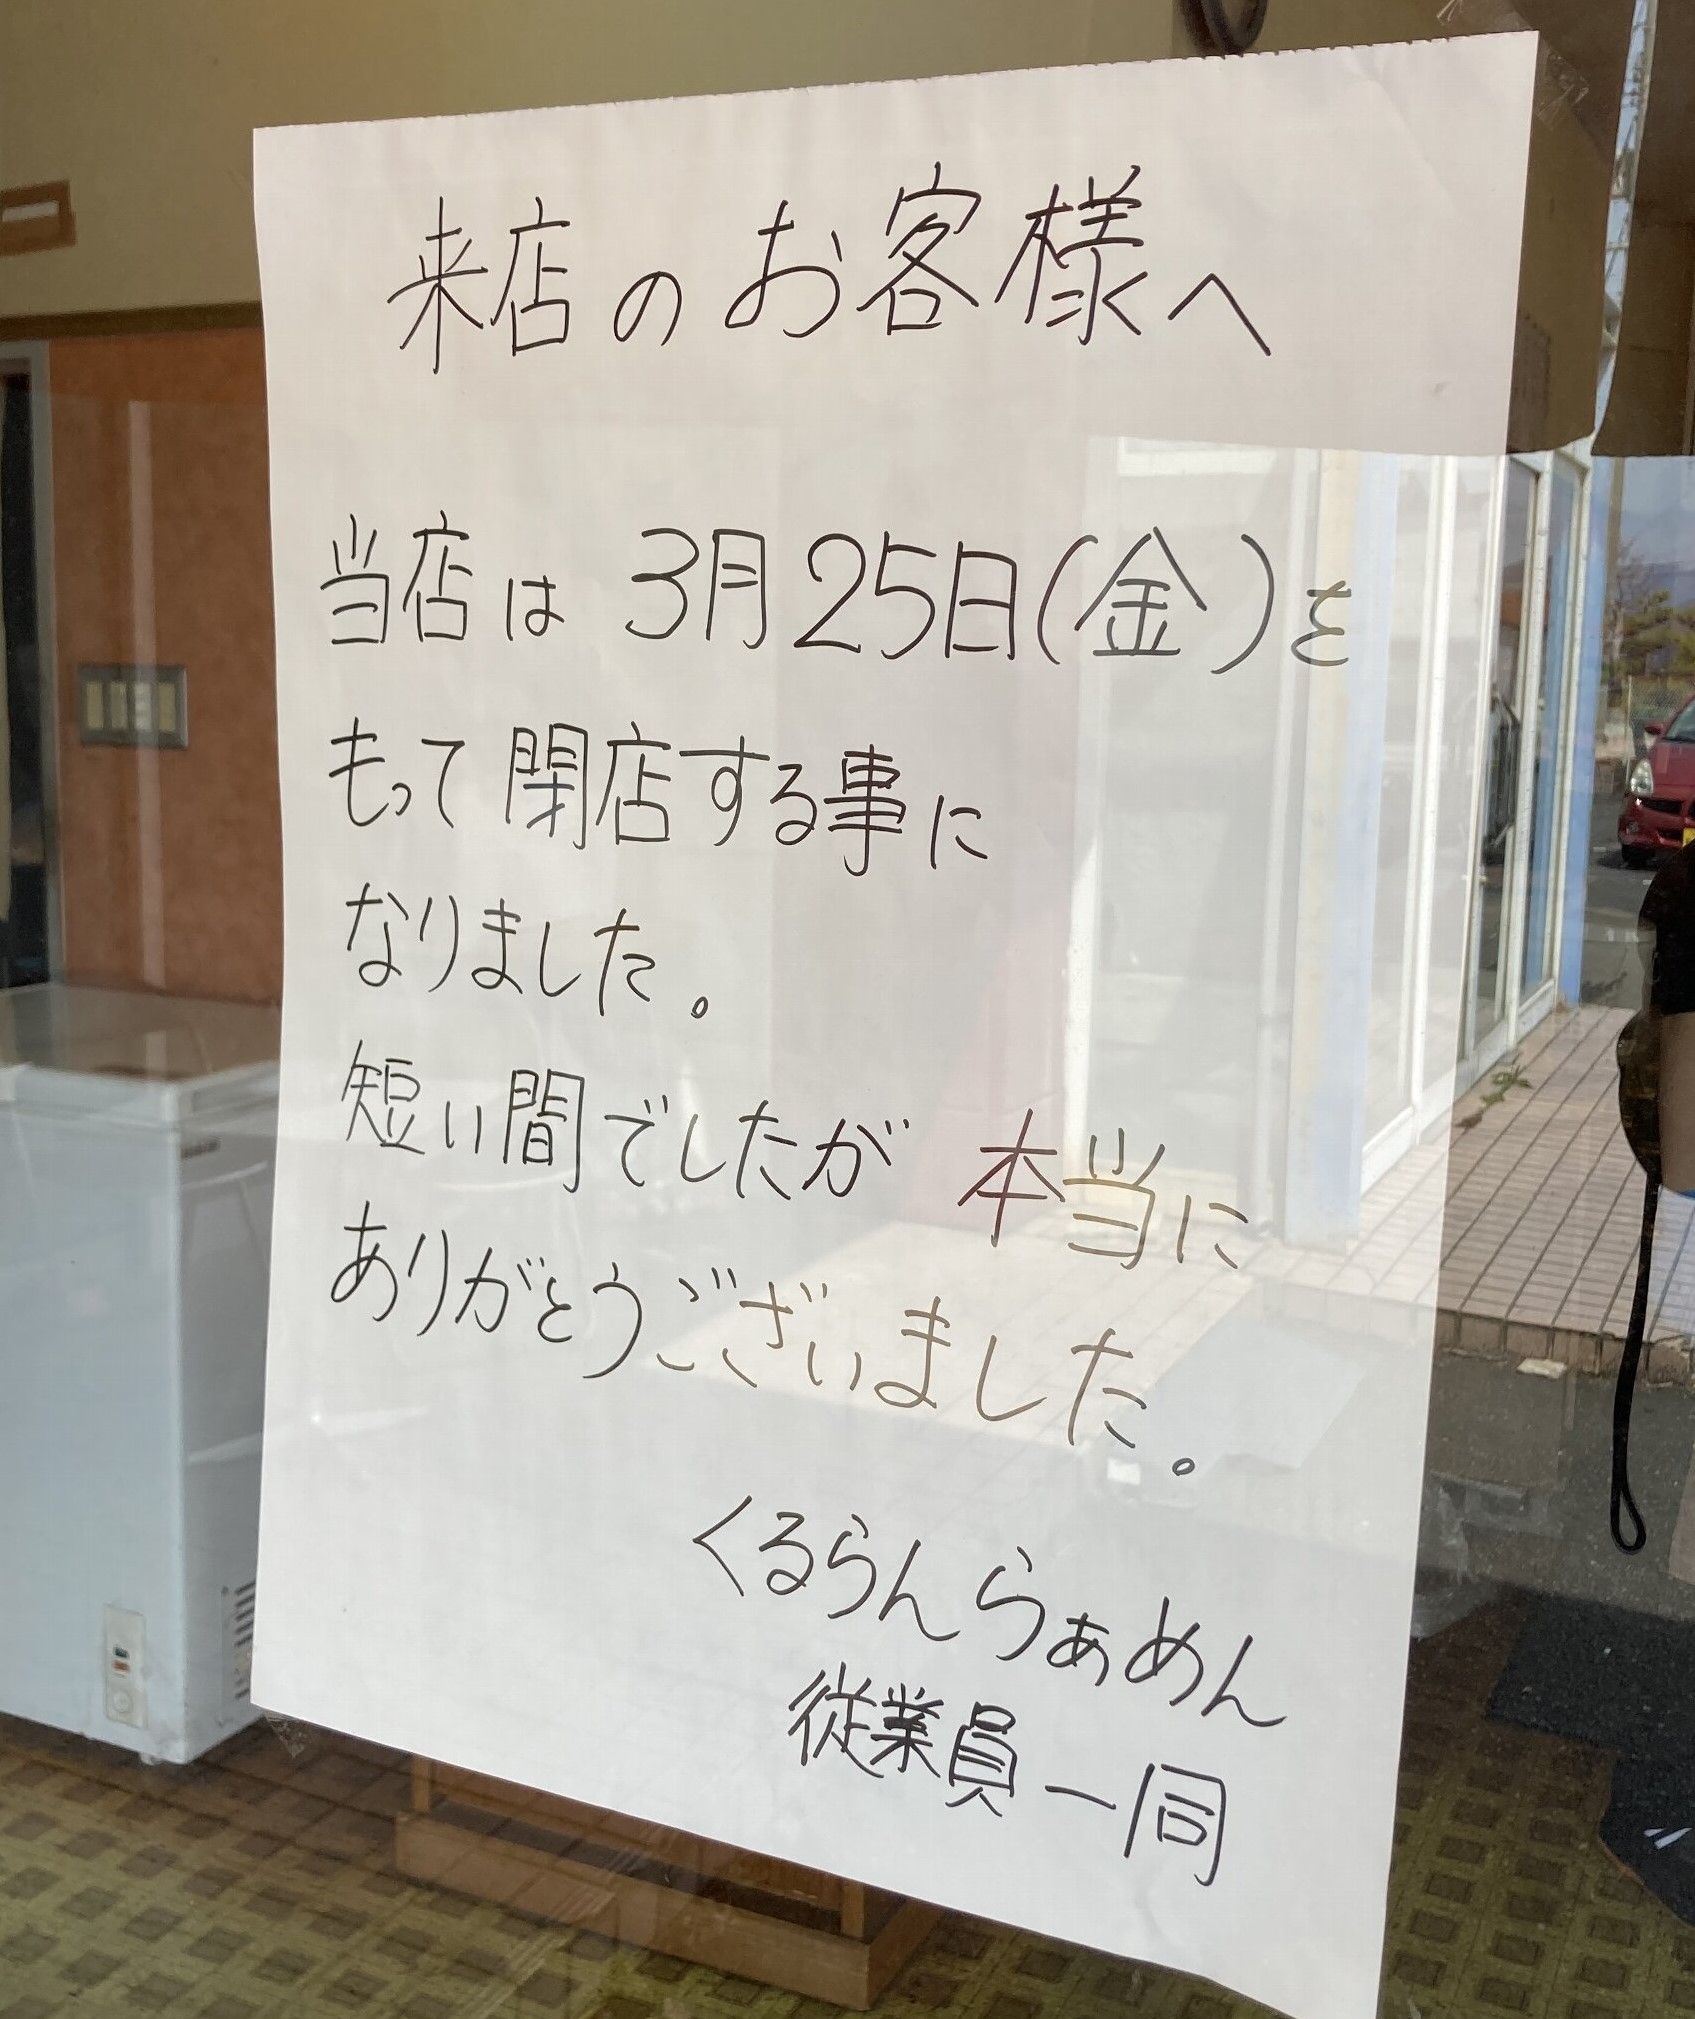 来店のお客様へ
当店は3月25日(金)を
もって閉店する事に
なりました。
短い間でしたが 本当に
ありがとうございました。
くるらんらぁめん
従業員一同